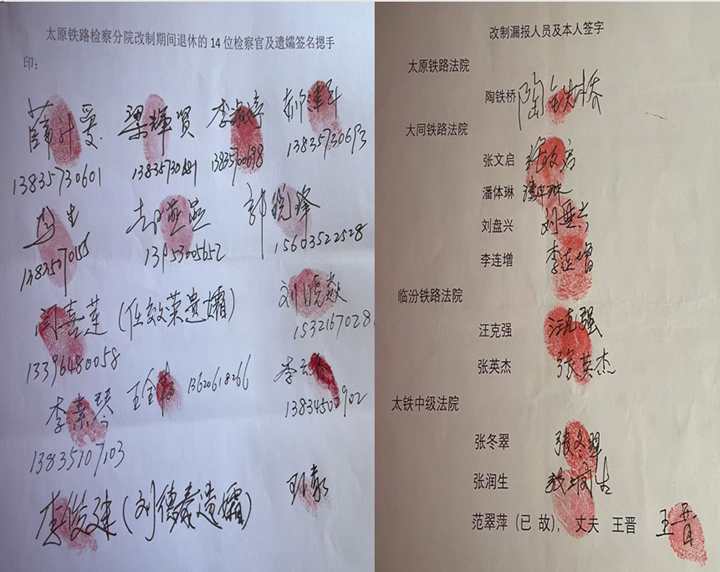 太原铁路检察分院改制期间退休的14位检察官及遗孀签名摁手
印：
梁辉贤
13835730601
13835700698 13835730693
郭锐锋
13953005652 15603522528
闫喜莲（任效荣遗孀）
13396480058
王全 13620618266
李素琴
13835107103 13834500902
李俊建（刘德寿遗孀）
改制漏报人员及本人签字
太原铁路法院
陶铁桥 陶铁桥
大同铁路法院
张文启 张文启
潘体琳 潘体琳
刘盘兴 刘盘兴
李连增 李连增
临汾铁路法院
汪克强 汪克强
张英杰 张英杰
太铁中级法院
张冬翠 张冬翠
张润生 张润生
范翠萍（已故），丈夫 王晋 王晋